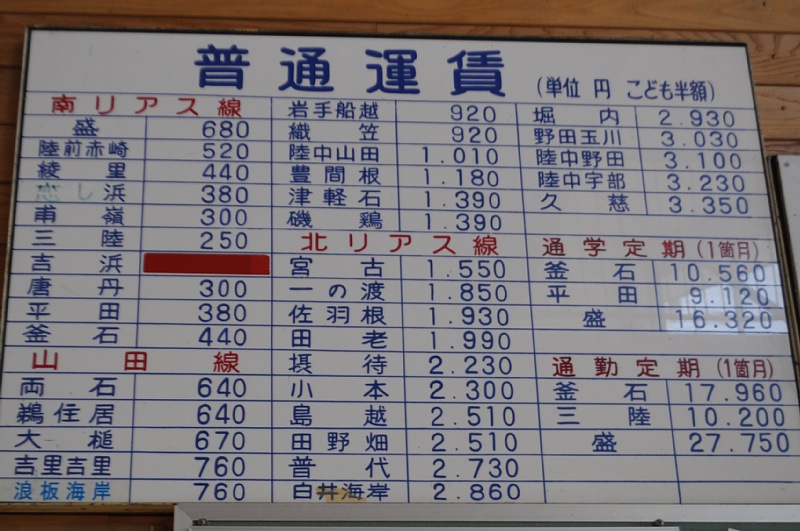 普通運賃 (単位 円 こども半額)
南リアス線
盛 680
陸前赤崎 520
綾里 440
恋し浜 380
甫嶺 300
三陸 250
吉浜
唐丹 300
平田 380
釜石 440
山田線
両石 640
鵜住居 640
大槌 670
吉里吉里 760
浪板海岸 760
岩手船越 920
織笠 920
陸中山田 1.010
豊間根 1.180
津軽石 1.390
磯鶏 1.390
北リアス線
宮古 1.550
一の渡 1.850
佐羽根 1.930
田老 1.990
摂待 2.230
小本 2.300
島越 2.510
田野畑 2.510
普代 2.730
白井海岸 2.860
堀内 2.930
野田玉川 3.030
陸中野田 3.100
陸中宇部 3.230
久慈 3.350
通学定期(1箇月)
釜石 10.560
平田 9.120
盛 16.320
通勤定期(1箇月)
釜石 17.960
三陸 10.200
盛 27.750